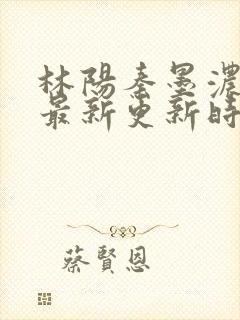 林陽秦墨濃
最新更新時
蔡賢恩